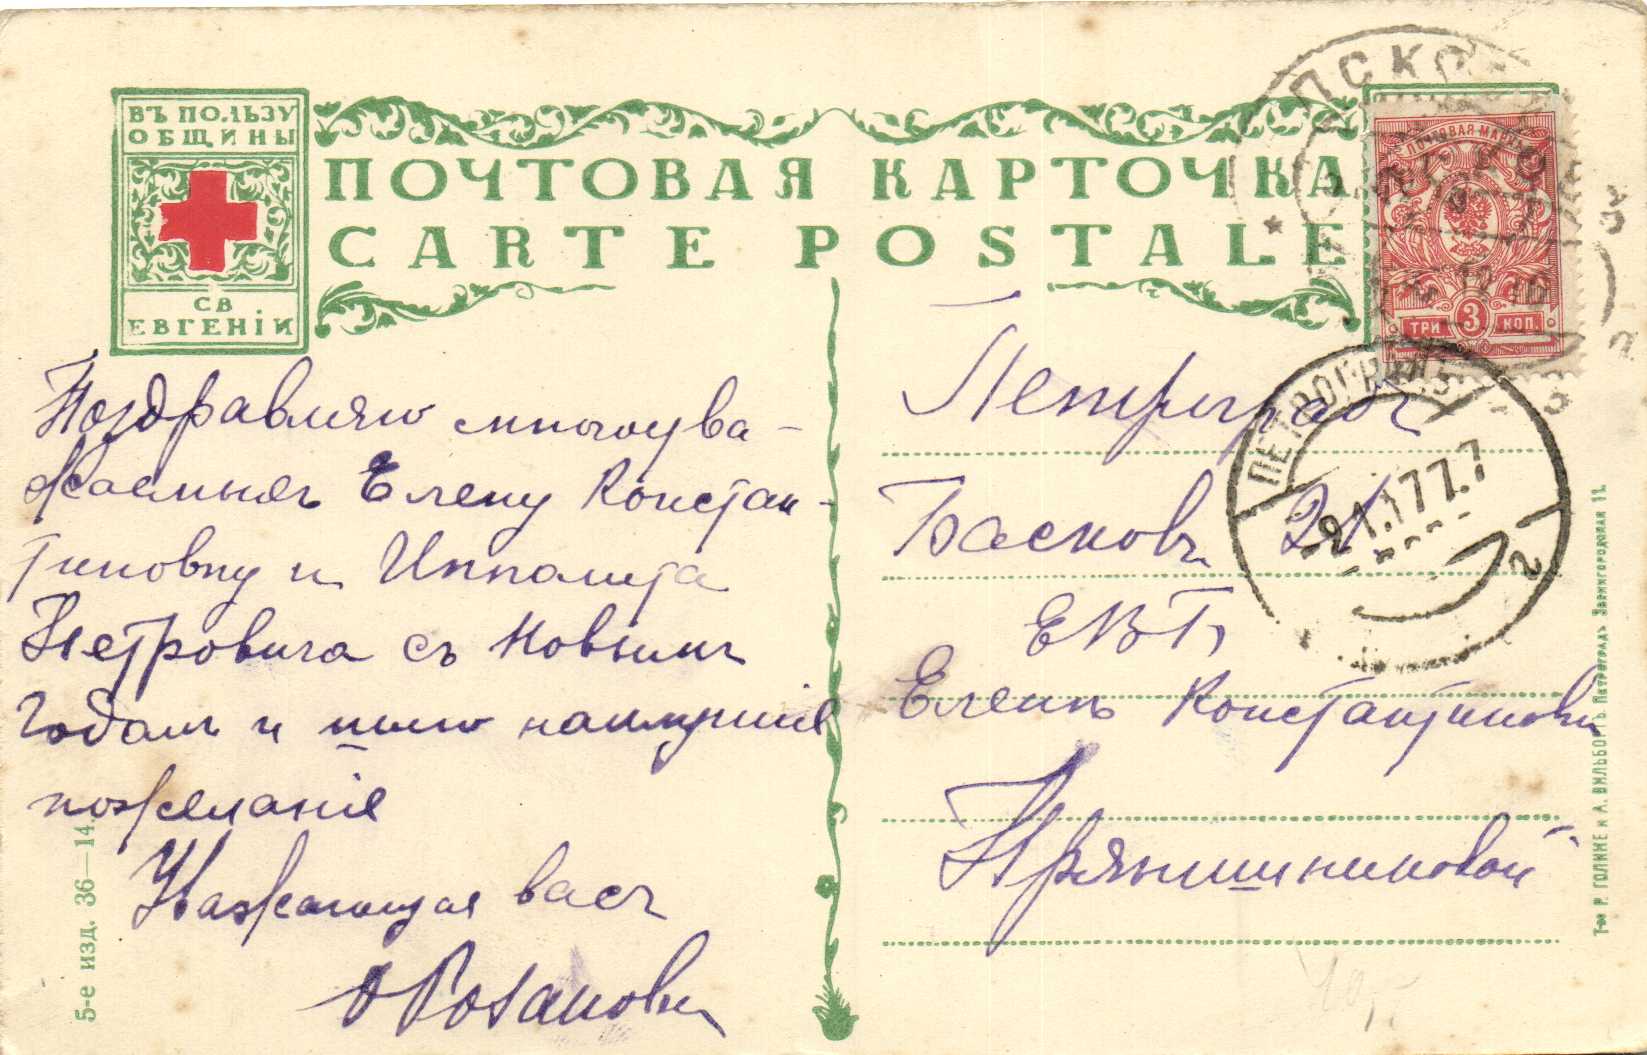 ВЪ ПОЛЬЗУ
ОБЩИНЫ
СВ
ЕВГЕНІИ
ПОЧТОВАЯ КАРТОЧКА
CARTE POSTALE
ПСКО
ПОЧТОВАЯ МАРКА
ТРИ 3 КОП.
ПЕТРОГРАДЪ
21.1.17 7
2
Поздравляю многоува-
жаемыхъ Елену Констан-
тиновну и Ипполита
Петровича съ Новымъ
Годомъ и шлю наилучшіе
пожеланія
Уважающая васъ
О Розанова
Петроградъ
Басковъ 21
ЕВП,
Еленѣ Константиновнѣ
Прянишниковой
5-е изд. 36—14.
Т-во Р. ГОЛИКЕ и А. ВИЛЬБОРГЪ Петроградъ Звенигородская 11.